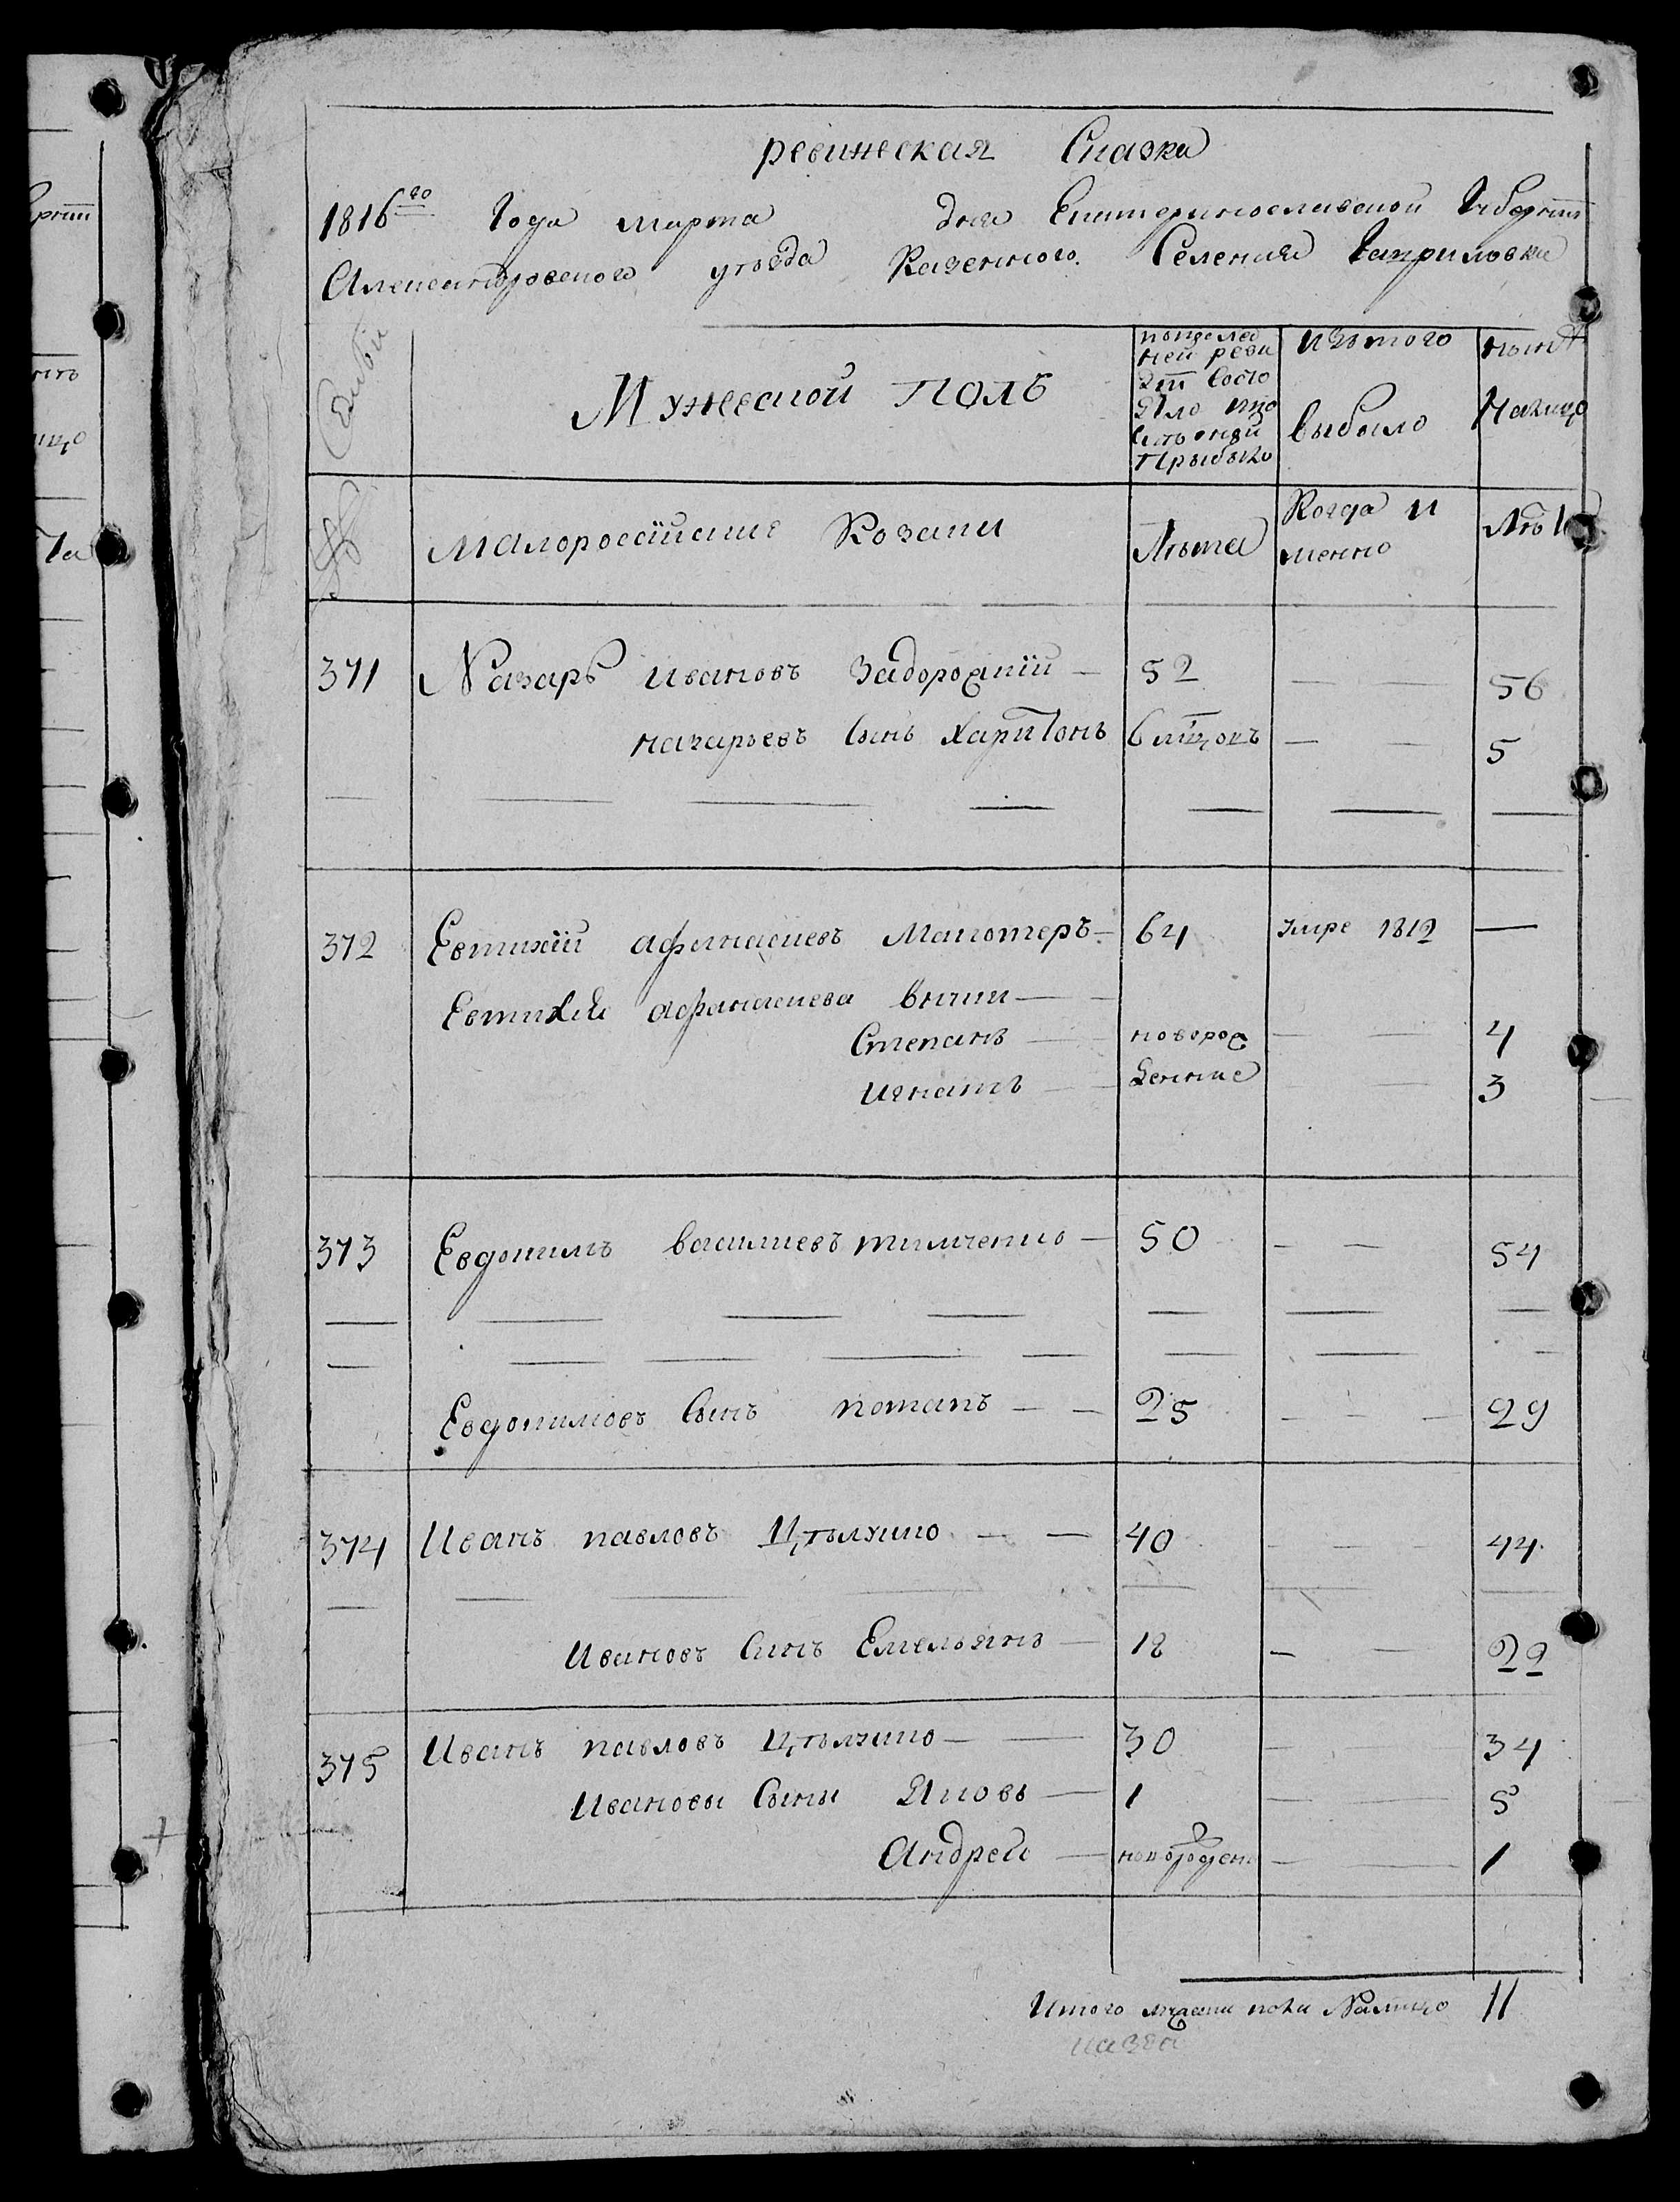 ревижеская Сказка
1816го Года марта дня Екатеринославской Губернии
Александровского уъезда Казенного Селения Гаприловки
Семьи
Мужеской полъ
попослед
ней реви
зіи состо
яло и по
слъ оной
прыбыло
изътого
выбыло
нынѣ
налицо
№
Малоросссійские Козаки
Лѣта
Когда и
менно
Лѣта
371 Назаръ Ивановъ Задорожній — 52 — — 56
назарьевъ Сынъ Харитонъ 6 мѣсяцовъ — — 5
372 Евтихій афанасиевъ Макотеръ — 64 умре 1812 —
Евтихия афанасиева внуки — —
Степанъ — новорож — — 4
игнатъ — денние 3
373 Евдокимъ василиевъ тимченко — 50 — — 54
Евдокимовъ Сынъ потапъ — — 25 — — — 29
374 Иванъ павловъ Цѣлхико — — 40 — — — 44
Ивановъ Синъ Емельянъ — 18 — — 22
375 Иванъ павловъ Цѣлхико — — 30 — — 34
Ивановы Сыны Яковъ — 1 — — 5
Андрей — новорожден — — 1
Итого мужеска пола Налицо 11